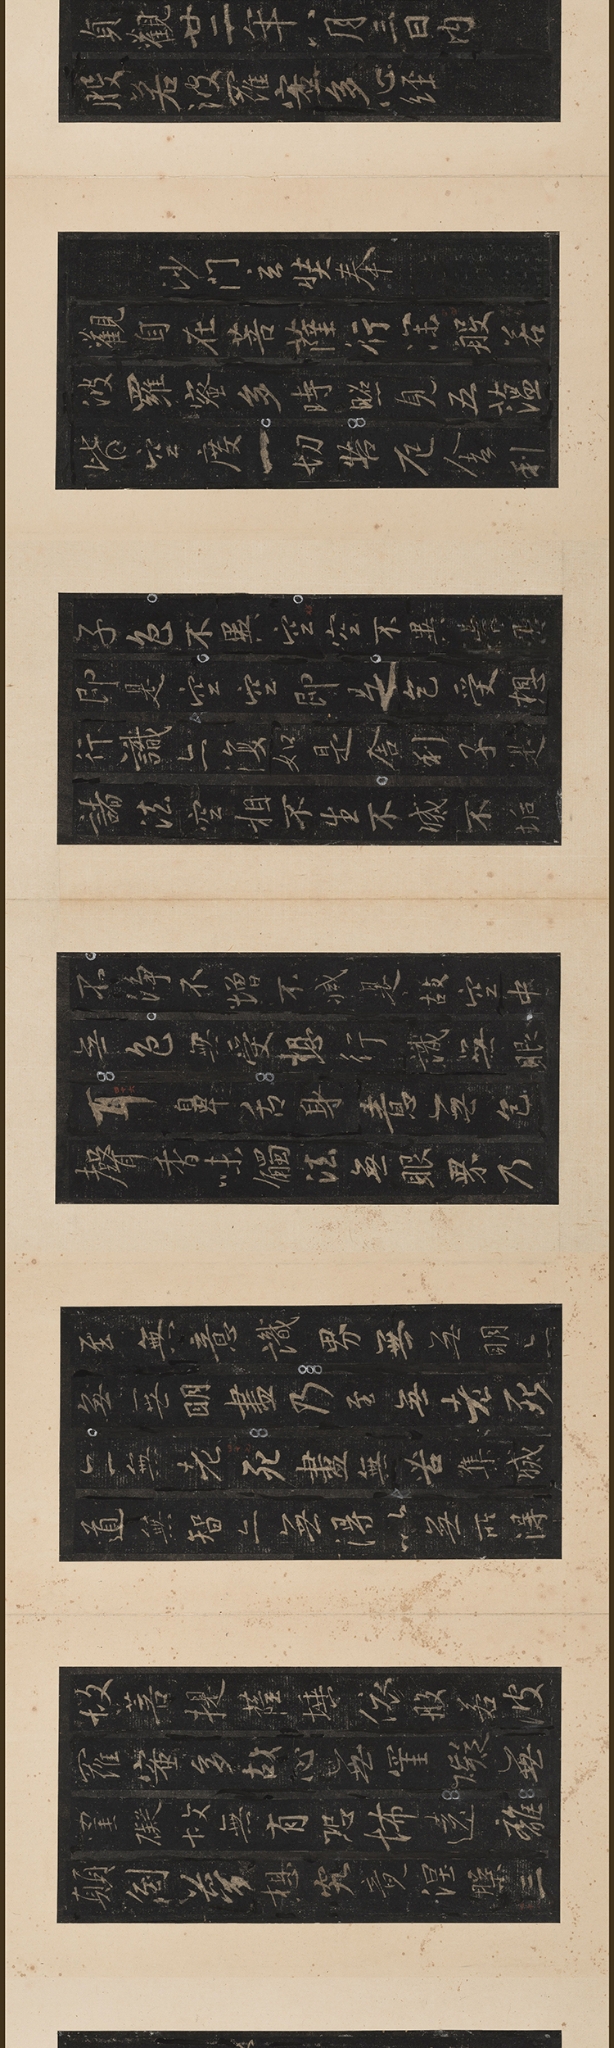 貞觀廿二年八月三日內
般若波羅蜜多心經
沙門玄奘奉
觀自在菩薩行深般若
波羅蜜多時照見五蘊
皆空度一切苦厄舍利
子色不異空空不異
即是空空即是色受想
行識亦復如是舍利子是
諸法空相不生不滅不垢
不淨不增不減是故空中
無色無受想行識無眼
耳鼻舌身意無色
聲香味觸法無眼界乃
至無意識界無無明亦
無無明盡乃至無老死
亦無老死盡無苦集滅
道無智亦無得以無所得
故菩提薩埵依般若波
羅蜜多故心無罣礙無
罣礙故無有恐怖遠離
顛倒夢想究竟涅槃三